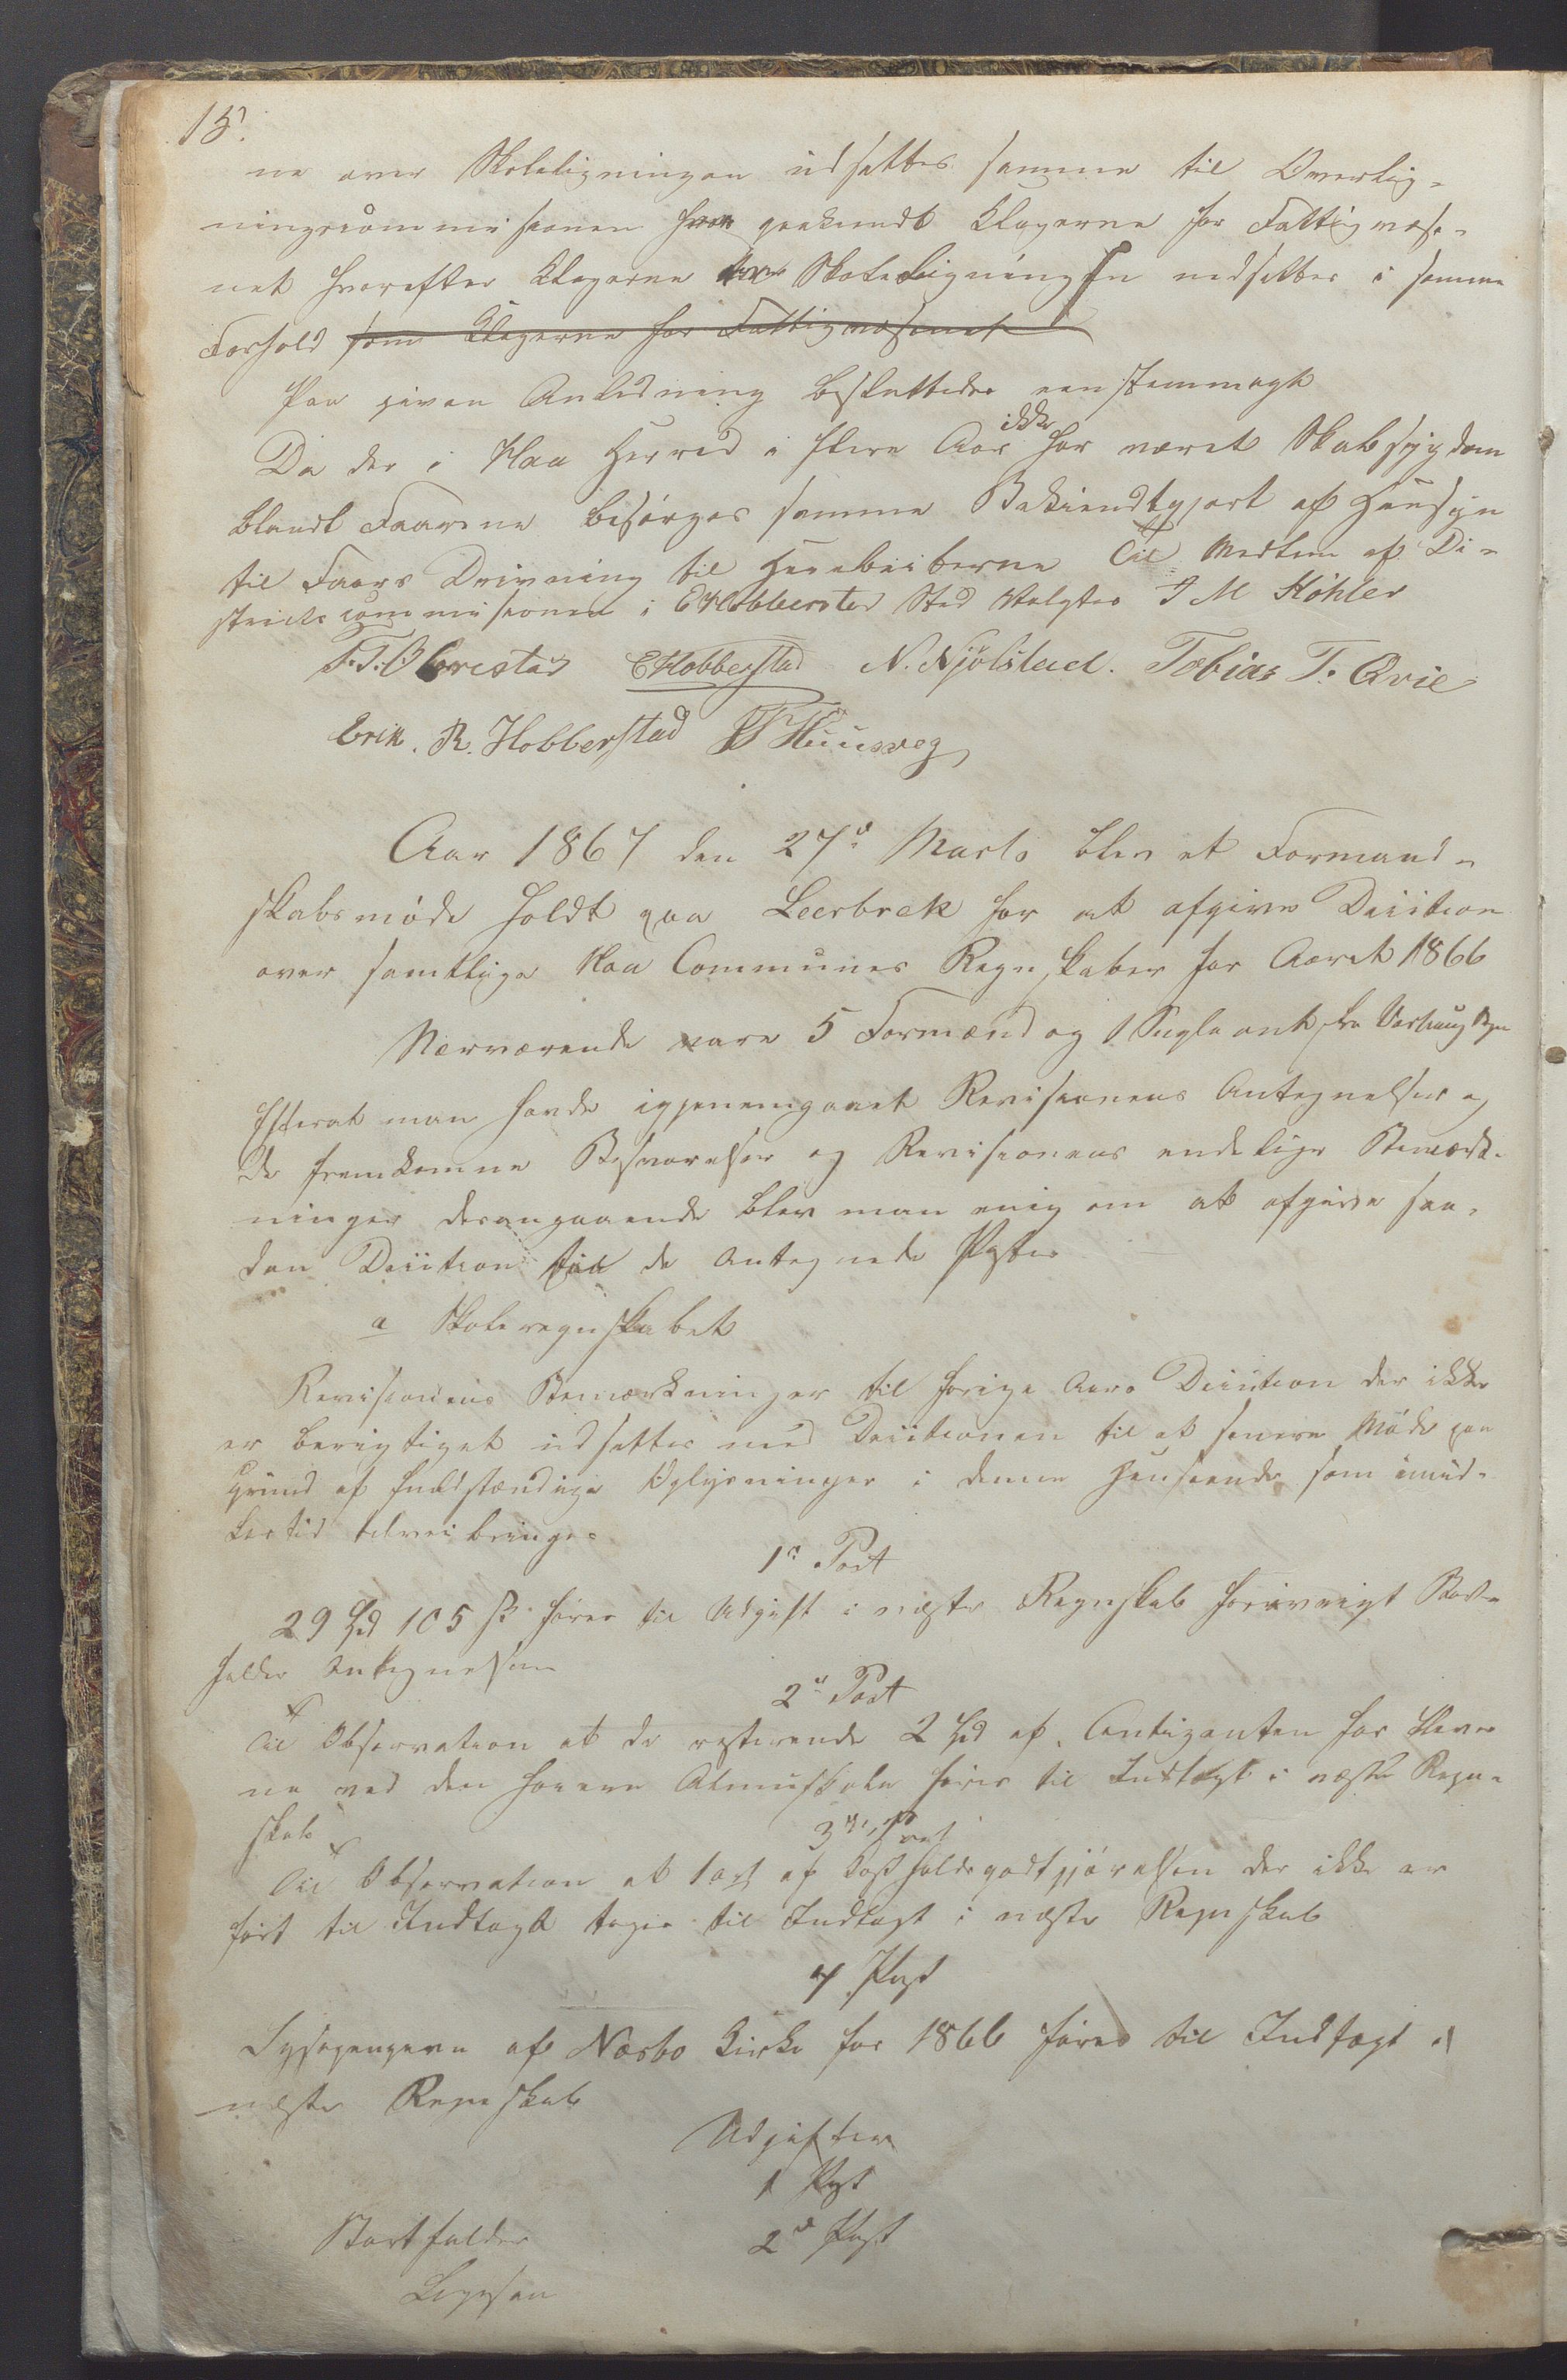 15.
ne over Skoleligningen udsattes samme til Overlig-
ningscommissionen har paakiendt Klagerne for Fattigvæse-
net hvorefter Klagerne over Skoleligningen nedsettes i samme
Forhold som Klagerne for Fattigvæsenet
Paa given Anledning besluttedes eenstemmigt
Da der i Haa Herred i flere Aar ikke har været Skabsygdom
blandt Faarene besørges samme Bekiendtgjort af Hensyn
til Faars Drivning til Heiebeiterne Til Medlem af Di-
strictscommissionen i E Hobberstad Sted Valgtes I M Köhler
T. T. Obrestad E Hobberstad N. Njølstad. Tobias T. Qvie
Erik. R. Hobberstad
Aar 1867 den 27de Marts blev et Formand-
skabsmøde holdt paa Leerbrek for at afgive Decition
over samtlige Haa Communes Regnskaber for Aaret 1866
Nærværende vare 5 Formænd og 1 Supleant fra Varhaug Sogn
Efterat man havde igjennemgaaet Revisionens Antegnelser og
de fremkomne Besvarelser og Revisionens endelige Bemærk-
ninger desangaaende blev man enig om at afgive saa-
dan Decition til de antegnede Poster
a Skoleregnskabet
Revisionens Bemærkninger til forige Aars Decition der ikke
er berigtiget udsættes med Decitionen til et senere Møde paa
Grund af fuldstændige Oplysninger i denne Henseende som imid-
lertid tilveibringes
1e Post
29 Spd 105 s føres til Udgift i næste Regnskab forøvrigt Bort-
falder Antegnelsen
2de Post
Til Observation at de resterende 2 Spd af Contigenten for Elever
ne ved den høiere Almueskole føres til Indtægt i næste Regn-
skab
3die Post
Til Observation at 1 ort af Kostholdsgodtgjørelsen der ikke er
ført til Indtægt tages til Indtægt i næste Regnskab
4 Post
Lysepengene af Nærbø Kirke for 1866 føres til Indtægt i
næste Regnskab
Udgifter
1 Post
Bortfalder
2de Post
Ligesaa